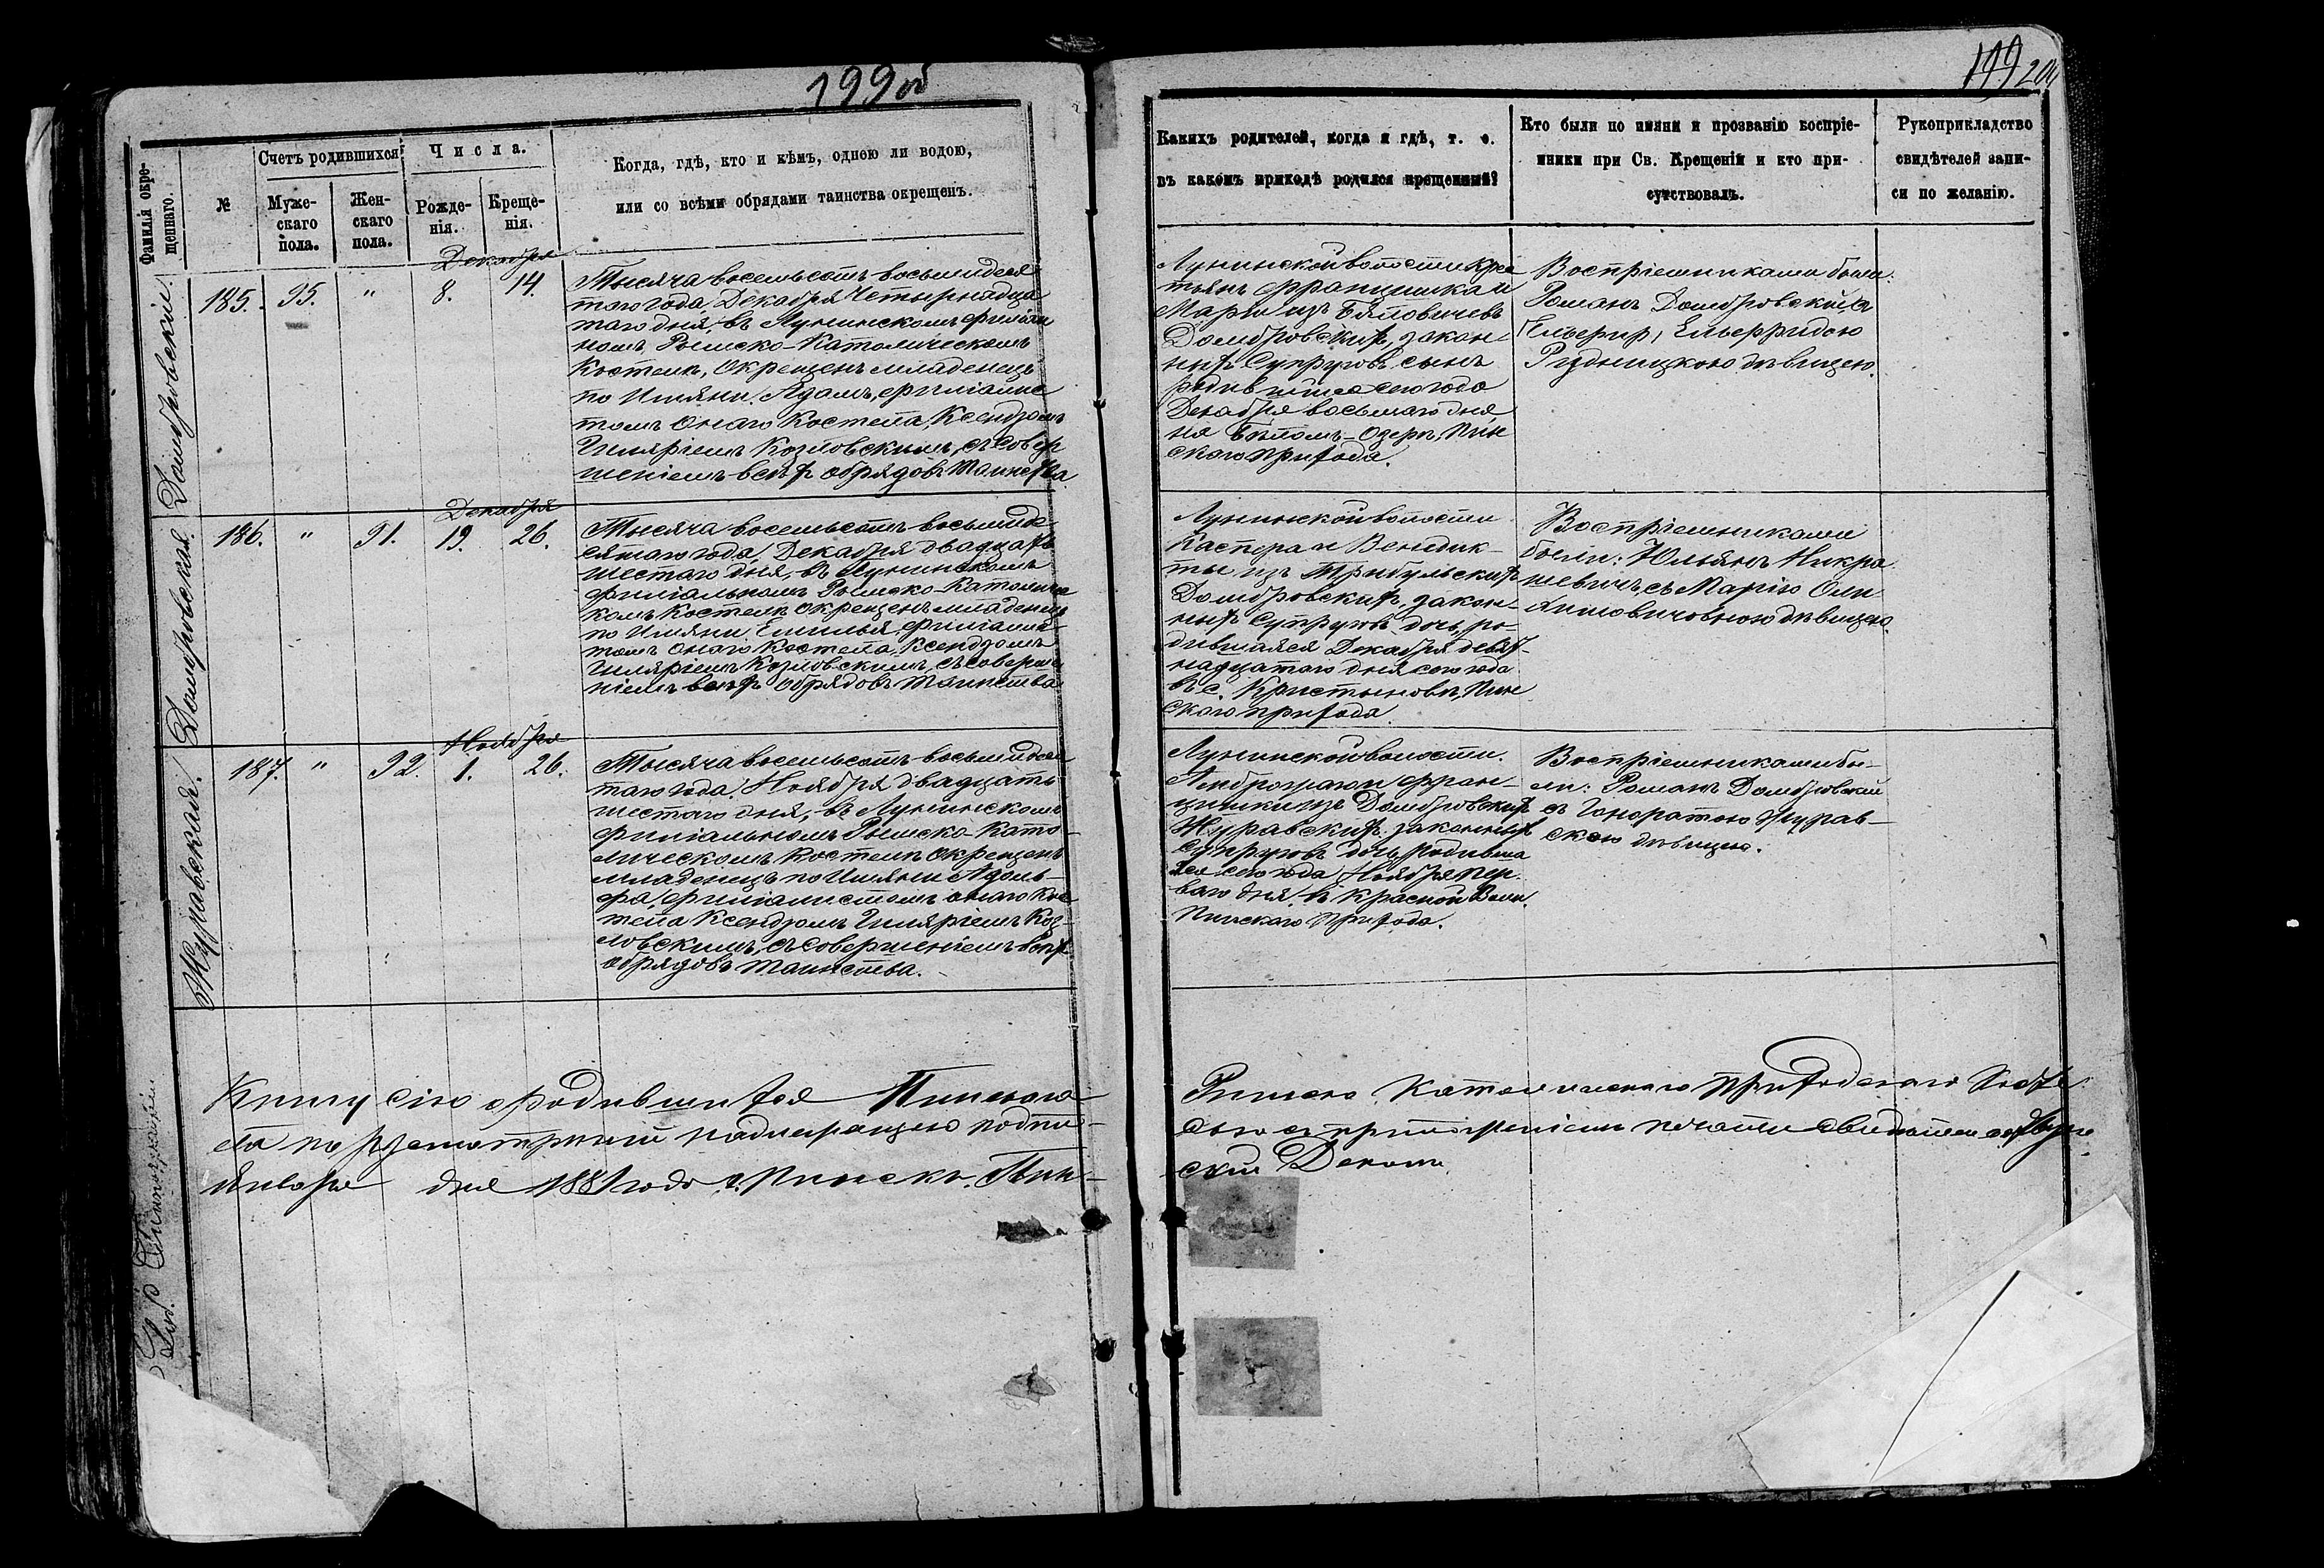 199об
199 200
Фамилія окре-
щеннаго.
№
Счетъ родившихся
Муже-
скаго
пола.
Жен-
скаго
пола.
Числа.
Рожде-
нія.
Креще-
нія.
Когда, гдѣ, кто и кѣмъ, одною ли водою,
или со всѣми обрядами таинства окрещенъ.
Какихъ родителей, когда и гдѣ, т. е.
въ какомъ приходѣ родился крещенный?
Кто были по имяни и прозванію воспріе-
мники при Св. Крещеніи и кто при-
сутствовалъ.
Рукоприкладство
свидѣтелей запи-
си по желанію.
Домбровскій.
185. 95. " Декабря 8. 14.
Тысяча восемьсотъ восьмидеся
таго года, Декабря Четырнадца
таго дня, въ Лунинскомъ филіаль
номъ Римско-Католическомъ
Костелѣ, Окрещенъ младенецъ
по Имяни Адамъ, филіалис
томъ онаго Костела, Ксендзомъ
Иляріемъ Козловскимъ, съ совер
шеніемъ всѣхъ обрядовъ таинства
Лунинской волости Крес
тьянъ Францишка и
Маріи изъ Бѣловичевъ
Домбровскихъ, закон-
ныхъ Супруговъ сынъ
родившійся сего года
Декабря восьмаго дня
на Бѣломъ-Озерѣ, Пин
скаго прихода.
Воспріемниками были
Романъ Домбровскій, съ
Ельфридою
Рудницкою дѣвицею.
Домбровская.
186. " 91. Декабря 19. 26.
Тысяча восемьсотъ восьмиде
сятаго года, Декабря двадцать
шестаго дня, въ Лунинскомъ
филіальномъ Римско-Католичес
комъ Костелѣ окрещенъ младенецъ
по Имяни Емилья, филіалис
томъ онаго Костела, Ксендзомъ
Иляріемъ Козловскимъ, съ соверше
ніемъ всѣхъ обрядовъ таинства
Лунинской волости
Каспера и Бенедик-
ты изъ Трибульскихъ
Домбровскихъ, закон-
ныхъ Супруговъ дочь, ро-
дившаяся Декабря девят-
надцатаго дня сего года
въ с. Кристыновѣ, Пин
скаго прихода.
Воспріемниками
были: Юльянъ Микра
шевичъ, съ Марію
дѣвицею.
Журавская.
187. " 92. Ноября 1. 26.
Тысяча восемьсотъ восьмидеся
таго года, Ноября двадцать
шестаго дня, въ Лунинскомъ
филіальномъ Римско-Като-
лическомъ Костелѣ окрещенъ
младенецъ по Имяни Адоль-
фа, филіалистомъ онаго Кос
тела Ксендзомъ Иляріемъ Коз-
ловскимъ, съ совершеніемъ всѣхъ
обрядовъ таинства.
Лунинской волости.
Амброзаго и Фран-
цишки изъ Домбровскихъ
Журавскихъ законныхъ
Супруговъ дочь, родивша
яся сего года Ноября пер-
ваго дня, въ Красной Воли,
Пинскаго прихода.
Воспріемниками бы-
ли: Романъ Домбровскій
съ Гоноратою Журав-
скою дѣвицею.
Книгу сію о родившихся Пинскаго
по надлежащею подпи-
Января дня 1881 года г. Пинскъ. Пин-
Римско Католическаго Приходскаго
сью съ приложеніемъ печати
скій Деканъ